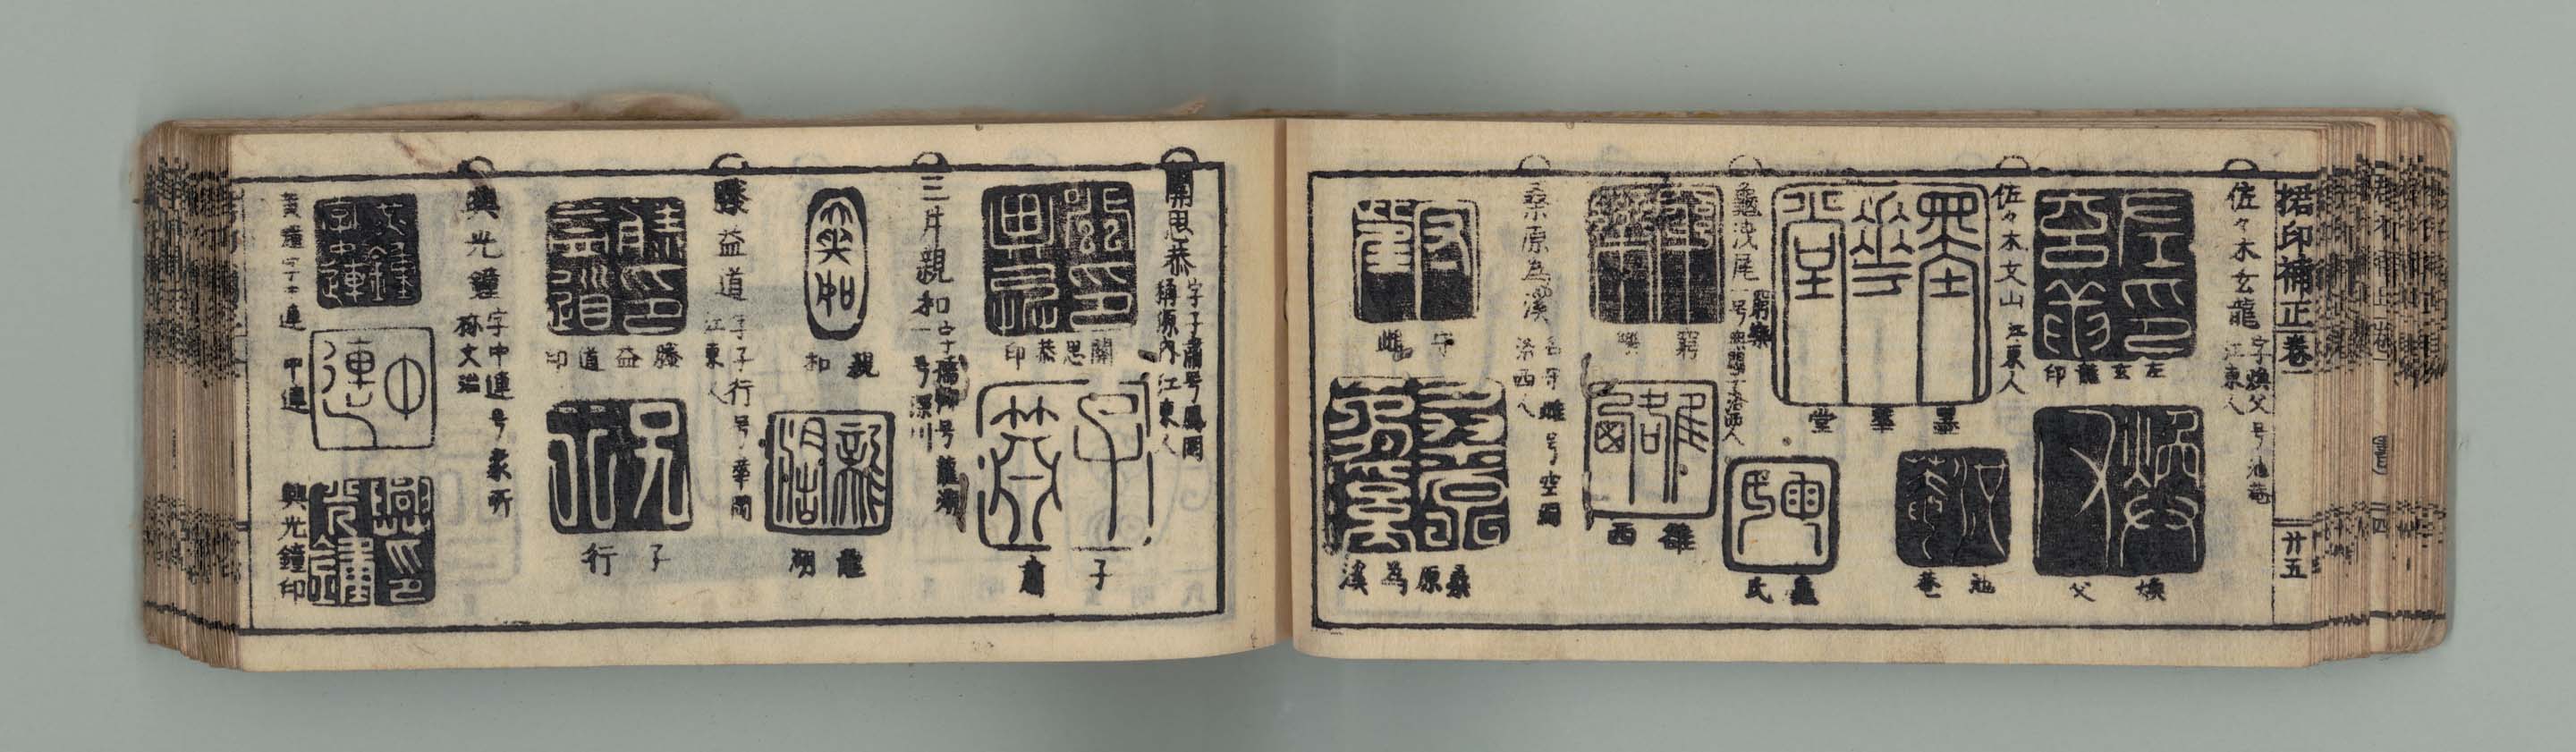 捃印補正卷一
廿五
佐々木玄龍
字煥父号池菴
江東人
左玄龍印
煥父
佐々木文山
江東人
池菴
墨華堂
龜洩尾
号無悶子洛西人
窮樂
龜氏
雒西
桑原為溪
名守雌号空洞
洛西人
守雌
桑原為溪
關思恭
字子肅号鳳岡
稱源内江東人
關思恭印
子肅
三井親和
号深川
親和
龍湖
滕益道
字子行号華岡
江東人
滕益道印
子行
興光鐘
字中連号象所
称文治
黄鐘字中連
中連
興光鐘印